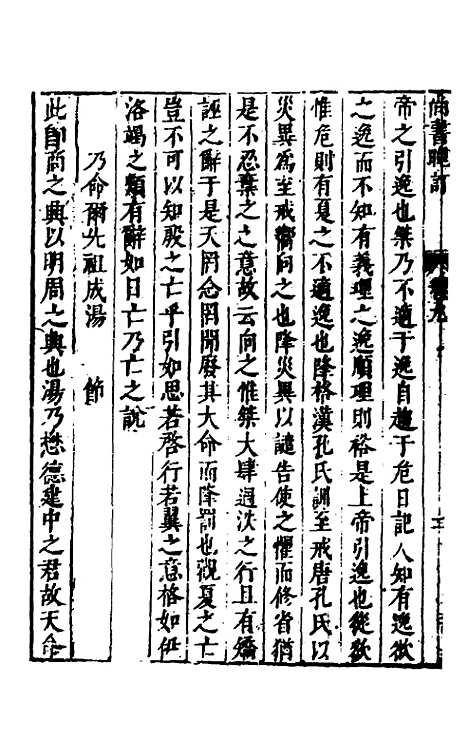 尚書晚訂　卷九
帝之引逸也桀乃不適于逸自趨于危日記人知有逸欲
之逸而不知有義理之逸順理則裕是上帝引逸也從欲
惟危則有夏之不適逸也降格漢孔氏訓至戒唐孔氏以
災異為至戒嚮向之也降災異以譴告使之懼而修省猶
是不忍棄之之意故云向之惟桀大肆過泆之行且有矯
誣之辭于是天罔念罔聞廢其大命而降罰也觀夏之亡
豈不可以知殷之亡乎引如思若啓行若翼之意格如伊
洛竭之類有辭如日亡乃亡之說
乃命爾先祖成湯　節
此即商之興以明周之興也湯乃懋德建中之君故天命